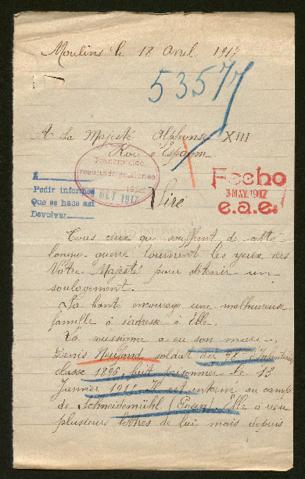 Moulins le 18 Avril 1917
53577
A La Majesté Alphonse XIII
Roi d'Espagne
Fecho
3 MAY. 1917
e.a.e.
A
Pedir informes
Que se hace así
Devolver
OCT 1917
Sire
Tous ceux qui souffrent de cette
longue guerre tournent les yeux vers
Votre Majesté pour obtenir un
soulagement.
Sa bonté encourage une malheureuse
famille à s'adresse à Elle.
La mienne a eu son mari
Denis soldat au d'Infanterie
classe 1896, fait prisonnier le 13
Janvier Il est interné au camp
de Schneidemühl (Posen) Elle a reçu
plusieurs lettres de lui mais depuis